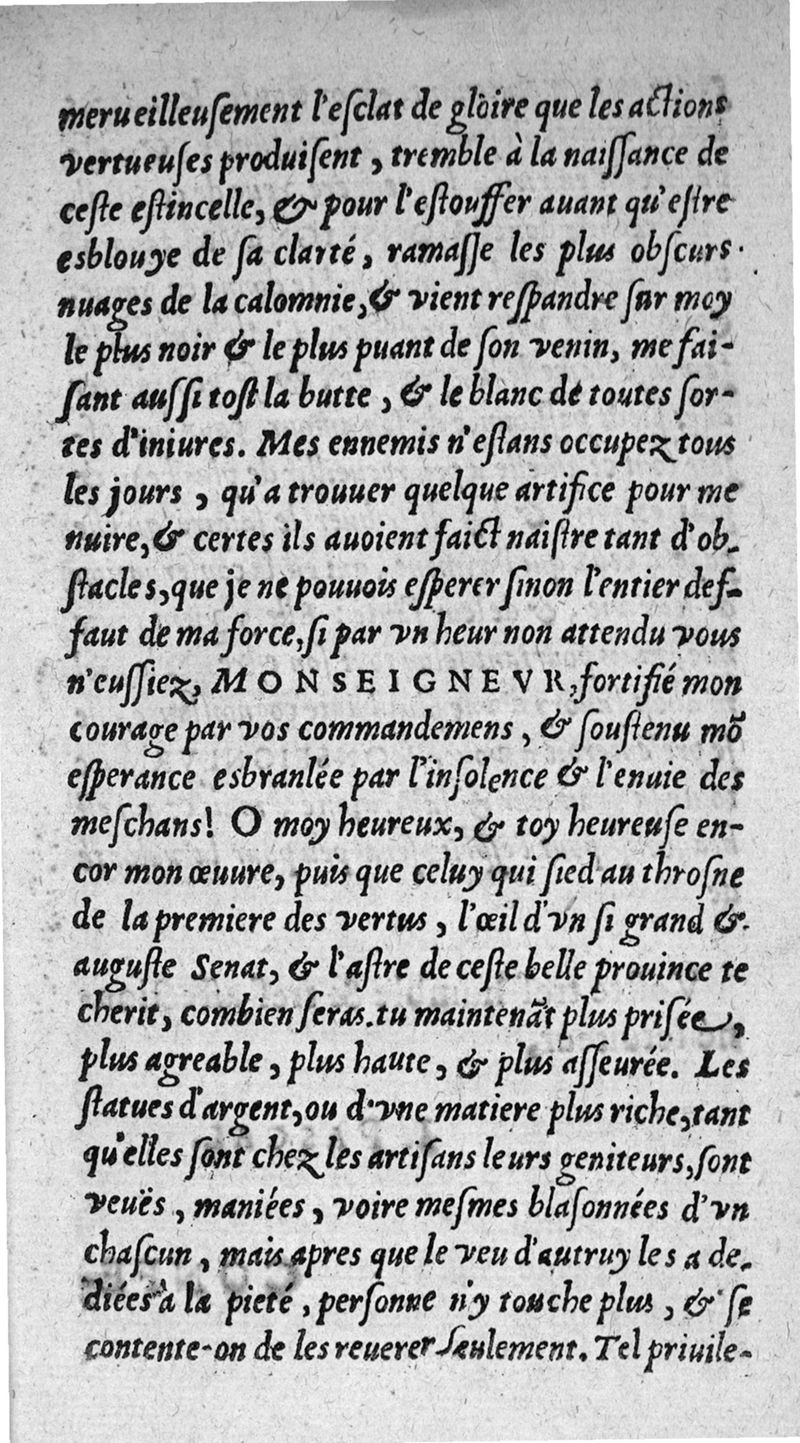 merueilleuſement l'eſclat de gloire que les actions
vertueuſes produiſent, tremble à la naiſſance de
ceſte eſtincelle, & pour l'eſtouffer auant qu'eſtre
esblouye de ſa clarté, ramaſſe les plus obſcurs
nuages de la calomnie, & vient reſpandre ſur moy
le plus noir & le plus puant de ſon venin, me fai-
ſant auſſi toſt la butte, & le blanc de toutes ſor-
tes d'iniures. Mes ennemis n'eſtans occupez tous
les jours, qu'a trouuer quelque artifice pour me
nuire, & certes ils auoient faict naiſtre tant d'ob-
ſtacles, que je ne pouuois eſperer ſinon l'entier def-
faut de ma force, ſi par vn heur non attendu vous
n'euſſiez, MONSEIGNEVR, fortifié mon
courage par vos commandemens, & ſouſtenu mõ
eſperance esbranlée par l'inſolence & l'enuie des
meſchans! O moy heureux, & toy heureuſe en-
cor mon œuure, puis que celuy qui ſied au throſne
de la premiere des vertus, l'œil d'vn ſi grand &
auguſte Senat, & l'aſtre de ceſte belle prouince te
cherit, combien ſeras.tu maintenãt plus priſée,
plus agreable, plus haute, & plus aſſeurée. Les
ſtatues d'argent, ou d'vne matiere plus riche, tant
qu'elles ſont chez les artiſans leurs geniteurs, ſont
veuës, maniées, voire meſmes blaſonnées d'vn
chaſcun, mais apres que le veu d'autruy les a de-
diées à la pieté, perſonne n'y touche plus, & ſe
contente-on de les reuerer ſeulement. Tel priuile-